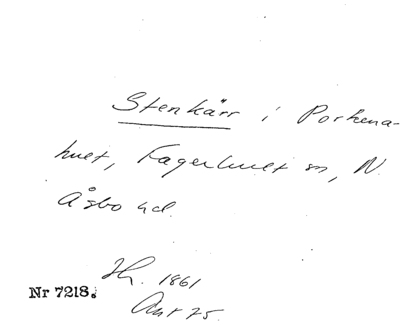 Stenkärr i Porkena-
hult, Fagerhult sn, N.
Åsbo hd.
Hr. 1861
Nr 7218.
Ant 75.